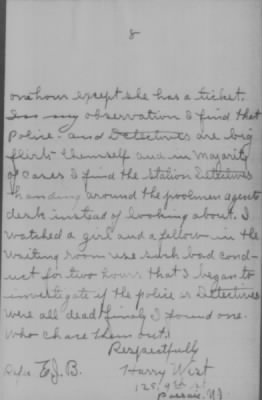 8
one hour except she has a ticket.
In my observation I find that
Police - and Detectives are big
flirts themself and in majority
of cases I find the Station Detectives
standing around the poolmen agents
desk instead of looking about. I
watched a girl and a fellow in the
waiting room use such bad cond-
uct for two hours that I began to
investigate if the police or Detectives
were all dead finaly I found one
who chase them out.
Respectfully
E.J.B. Harry Wist
128 9th st
Passaic, NJ.